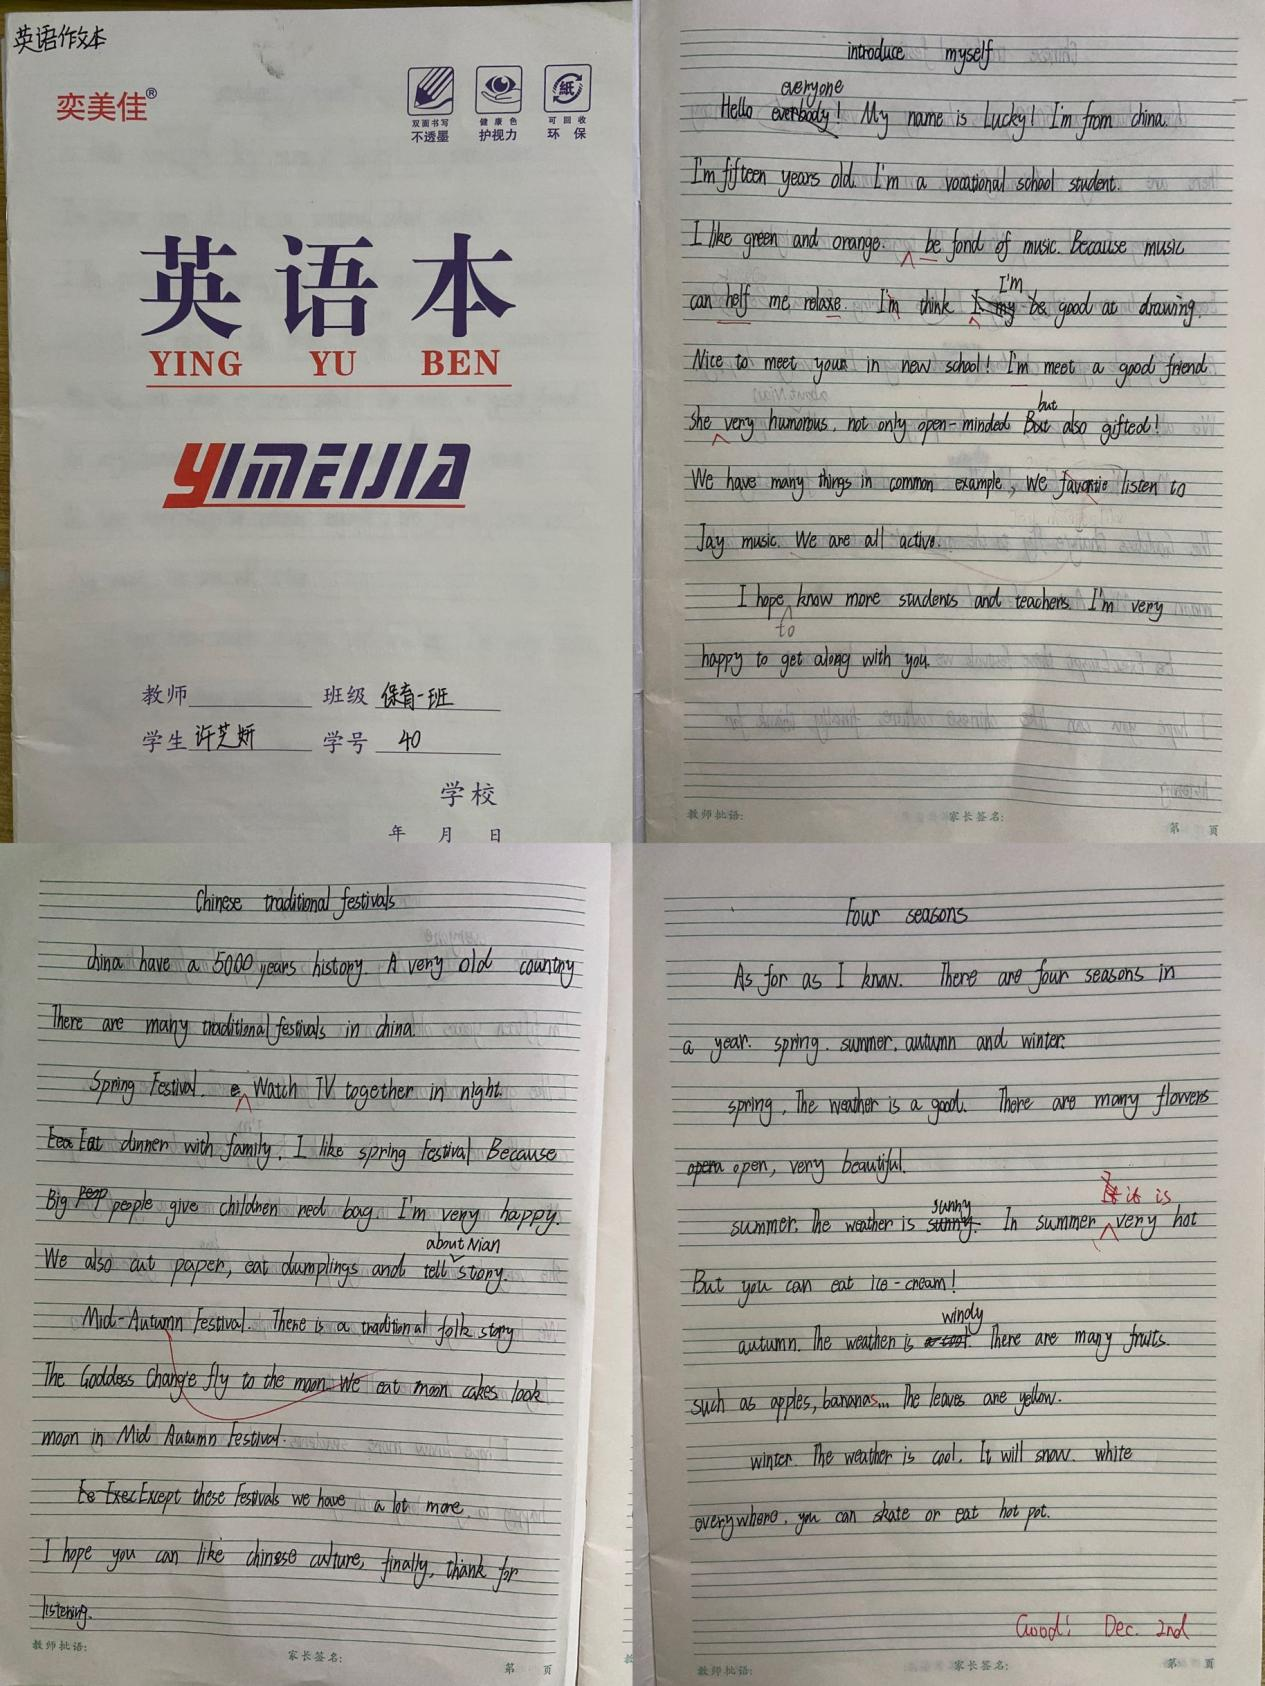 英语作文本
奕美佳®
双面书写 健康色 可回收
不透墨 护视力 环保
英语本
YING YU BEN
YIMEIJIA
教师 班级 保育一班
学生 许芝妍 学号 40
学校
年 月 日
introduce myself
everyone
Hello everbody! My name is Lucky! I'm from china.
I'm fifteen years old. I'm a vocational school student.
I like green and orange. be fond of music. Because music
I'm
can helf me relaxe. I'm think I my be good at drawing.
Nice to meet your in new school! I'm meet a good friend
but
She very humorous, not only open-minded But also gifted!
We have many things in common example, we favortie listen to
Jay music. We are all active.
I hope know more students and teachers. I'm very
to
happy to get along with you.
教师批语: 家长签名:
第 页
Chinese traditional festivals
china have a 5000 years history. A very old country
There are many traditional festivals in china.
Spring Festival. e Watch TV together in night.
Eea Eat dinner with family. I like spring Festival Because
Big peop people give children red bag. I'm very happy.
about Nian
We also cut paper, eat dumplings and tell story.
Mid-Autumn Festival. There is a traditional folk story
The Goddess Chang'e fly to the moon. We eat moon cakes look
moon in Mid Autumn Festival.
Ee Exec Except these Festivals we have a lot more.
I hope you can like chinese culture, finally, thank for
listening.
教师批语: 家长签名:
第 页
Four seasons
As for as I know. There are four seasons in
a year. spring. summer. autumn and winter.
spring. The weather is a good. There are many flowers
opera open, very beautiful.
sunny It it is
summer. The weather is sunny. In summer very hot
But you can eat ice-cream!
windy
autumn. The weather is a cool. There are many fruits.
such as apples, bananas... The leaves are yellow.
winter. The weather is cool. It will snow. white
everywhere. you can skate or eat hot pot.
Good! Dec. 2nd
教师批语: 家长签名:
第 页